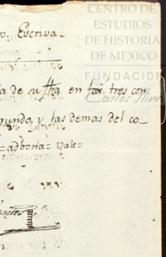 CENTRO DE
ESTUDIOS
DE HISTORIA
DE MEXICO
FUNDACIÓN
Carlos Slim
o. Escriva-
a de su fha en foxs. tres con
gundo, y las demas del co-
adboria= Vale=